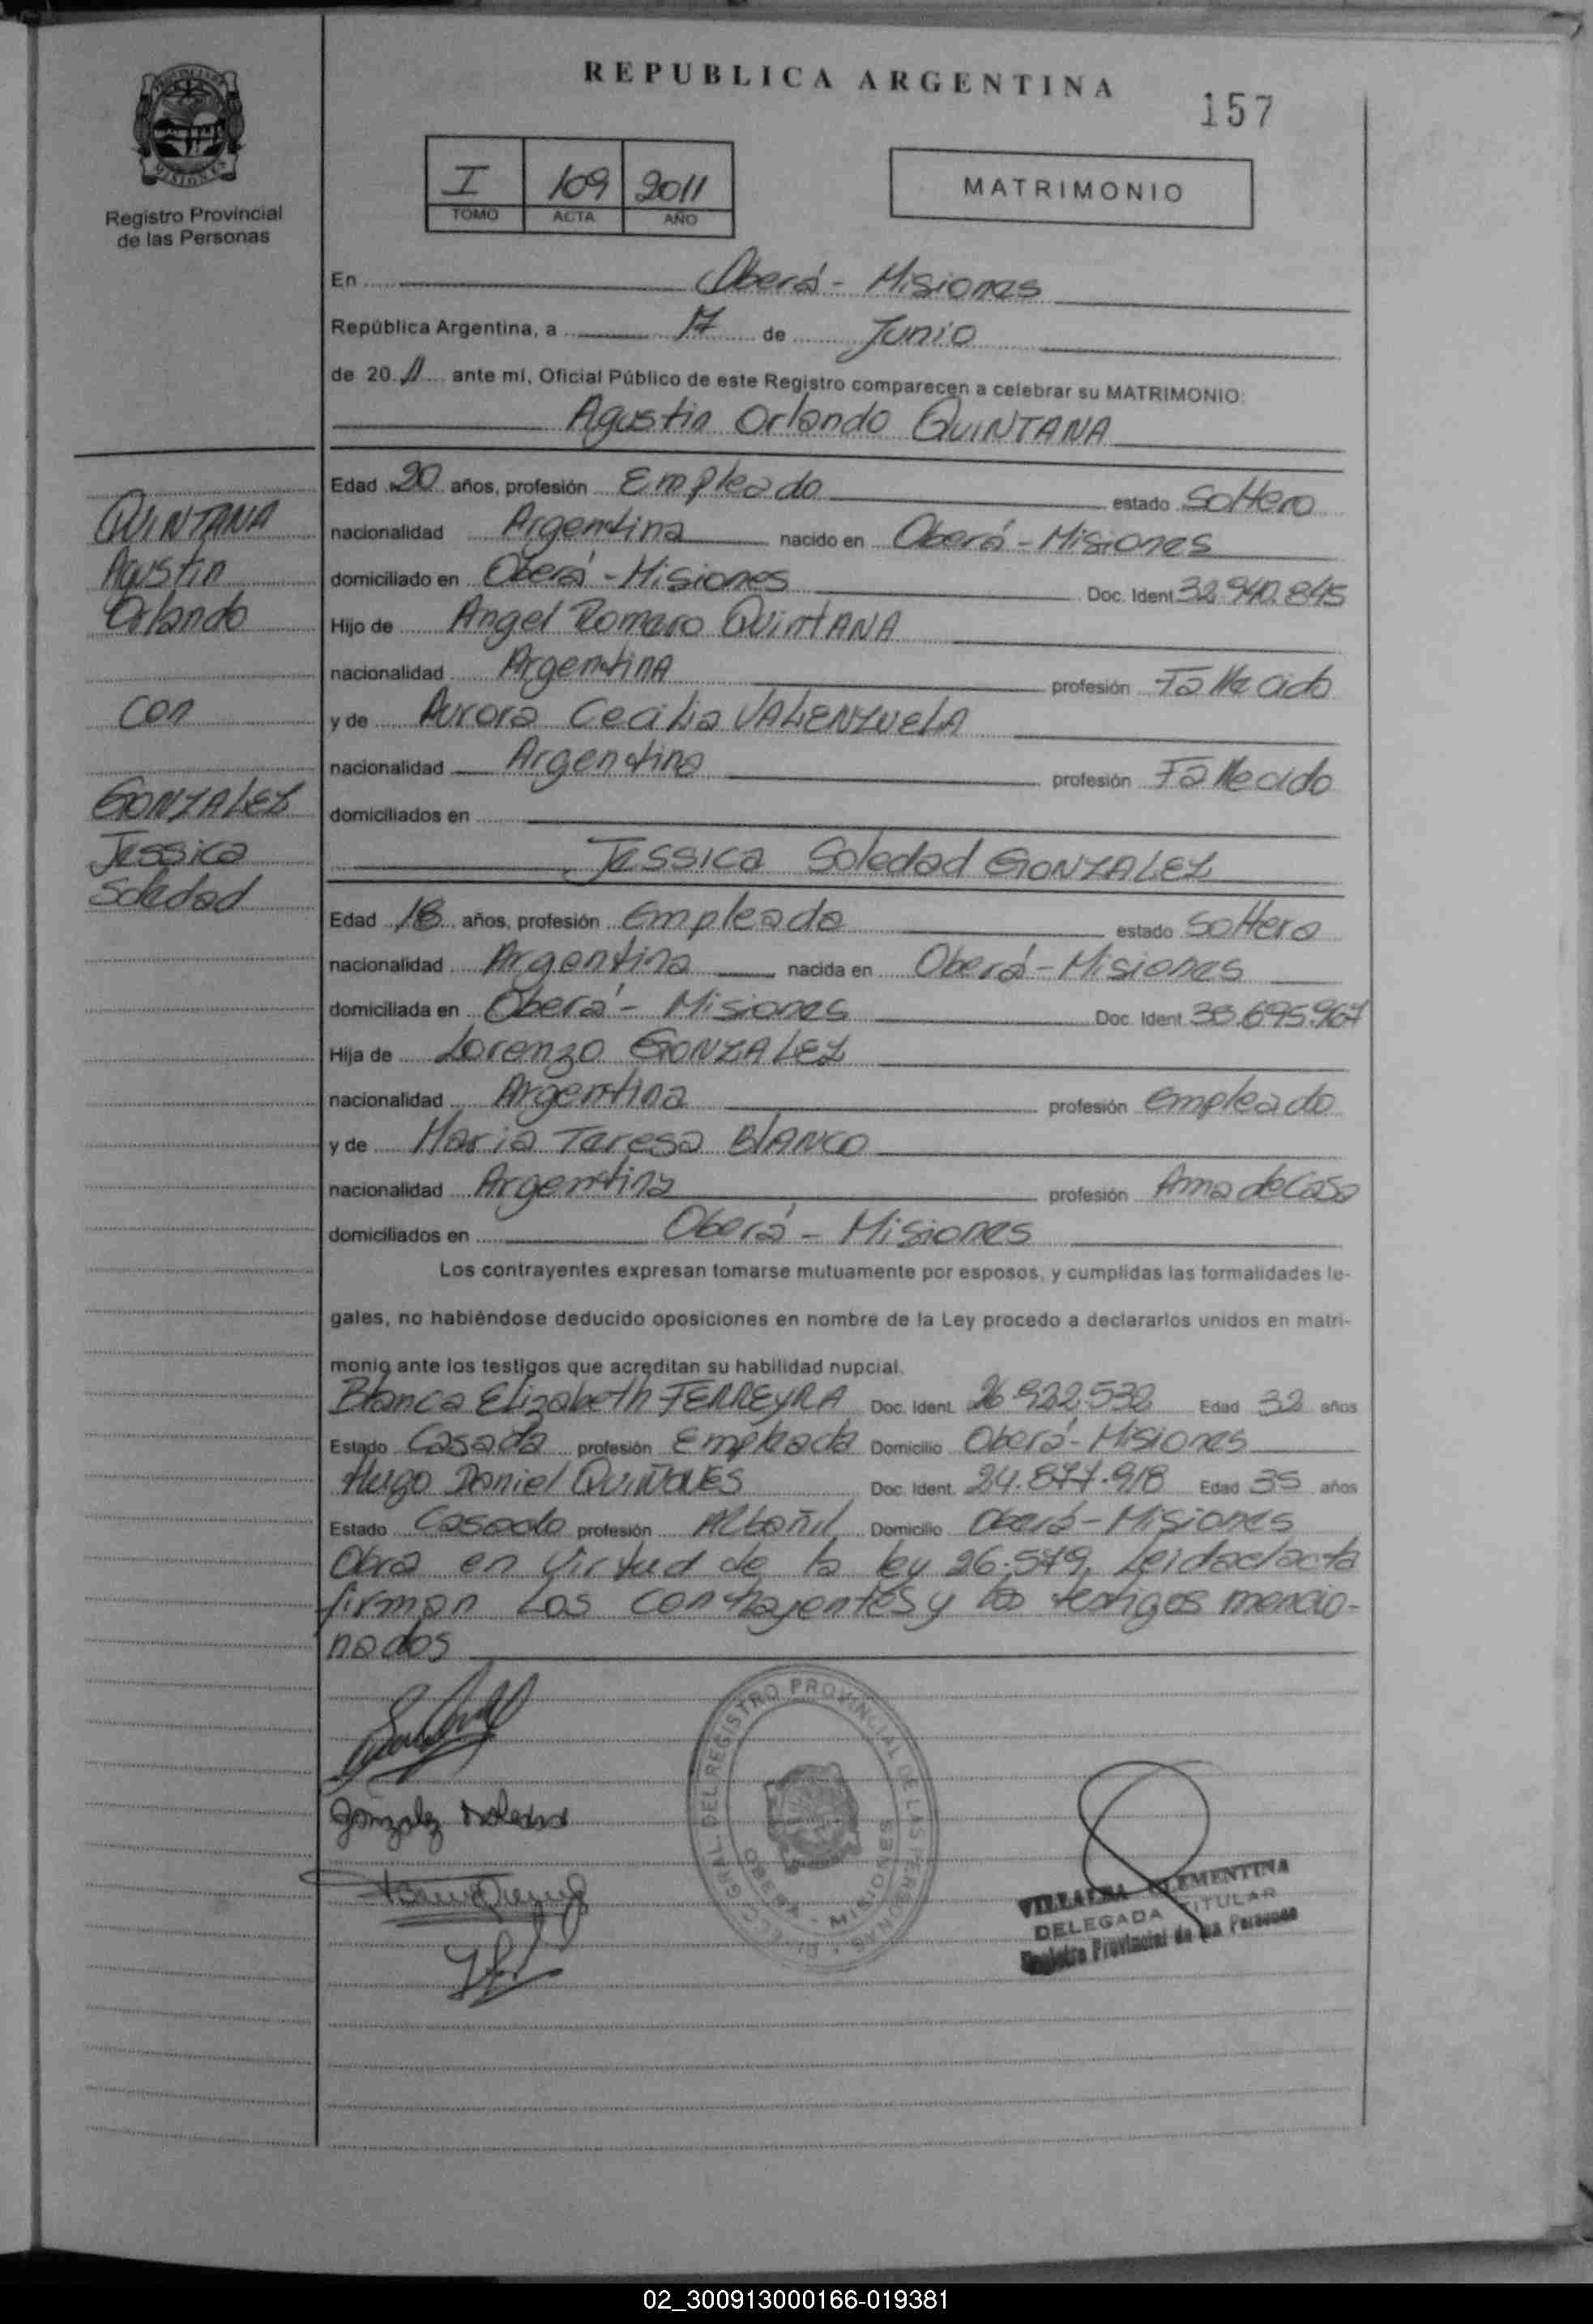 REPUBLICA ARGENTINA
157
MISIONES
Registro Provincial
de las Personas
I 109 2011
TOMO ACTA AÑO
MATRIMONIO
En Oberá - Misiones
República Argentina, a 17 de Junio
de 20 11 ante mí, Oficial Público de este Registro comparecen a celebrar su MATRIMONIO:
Agustin Orlando QUINTANA
Edad 20 años, profesión Empleado estado Soltero
nacionalidad Argentina nacido en Oberá - Misiones
domiciliado en Oberá - Misiones Doc. Ident 32.940.845
Hijo de Angel Romero QuintANA
nacionalidad Argentina profesión Fallecido
y de Aurora Cecilia VALENZUELA
nacionalidad Argentina profesión Fallecido
domiciliados en
QUINTANA
Agustin
Orlando
con
GONZALEZ
Jessica
Soledad
Jessica Soledad GONZALEZ
Edad 18 años, profesión Empleada estado Soltera
nacionalidad Argentina nacida en Oberá - Misiones
domiciliada en Oberá - Misiones Doc. Ident. .695.967
Hija de Lorenzo GONZALEZ
nacionalidad Argentina profesión empleado
y de Maria Teresa BLANCO
nacionalidad Argentina profesión Ama de Casa
domiciliados en Oberá - Misiones
Los contrayentes expresan tomarse mutuamente por esposos, y cumplidas las formalidades le-
gales, no habiéndose deducido oposiciones en nombre de la Ley procedo a declararlos unidos en matri-
monio ante los testigos que acreditan su habilidad nupcial.
Blanca Elizabeth FERREYRA Doc. Ident. 26.922.532 Edad 32 años
Estado Casada profesión Empleada Domicilio Oberá - Misiones
Hugo Daniel QUIÑONES Doc. Ident. 24.877.918 Edad 35 años
Estado Casado profesión Albañil Domicilio Oberá - Misiones
Obra en virtud de la ley 26.579. Leida el acta
firman Los contrayentes y los testigos mencio-
nados
Gonzalez Soledad
DIRECC. GRAL. DEL REGISTRO PROVINCIAL DE LAS PERSONAS
OBERA - MISIONES
VILLALBA CLEMENTINA
DELEGADA TITULAR
Registro Provincial de las Personas
02_300913000166-019381